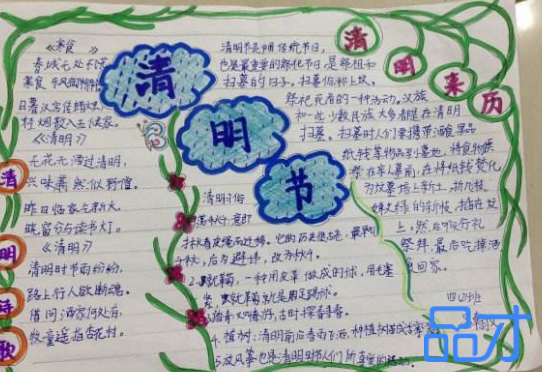 清明诗歌
《寒食》
春城无处不飞
寒食
日暮汉宫传蜡烛
轻烟散入五侯家
《清明》
无花无酒过清明,
兴味萧然似野僧
昨日邻家乞新火
晓窗分与读书灯。
《清明》
清明时节雨纷纷,
路上行人欲断魂。
借问酒家何处有,
牧童遥指杏花村。
清明节
清明来历
清明节是
传统节日,
也是最重要的祭祀节日是祭祖和
扫墓的日子。扫墓俗称上坟,
祭祀死者的一种活动。汉族
和一些少数民族大多都是在清明
扫墓。扫墓时人们要携带酒食果品
纸钱等物品到墓地,将食物供
祭在亲人墓前,在将纸钱焚化
为坟墓培上新土,折几枝
嫩绿的新枝插在坟
上,然后
行礼
祭拜,最后吃掉酒
回家。
四
班
清明习俗
1.荡秋千:意即
后为避讳,改为秋千。
2.
一种用皮革做成的球,
就是用足踢球。
3.踏青
春游,古时
探春
4.植树:清明前后春雨飞洒,种植树苗成
5.放风筝也是清明时节人们所喜爱的活动。
品才